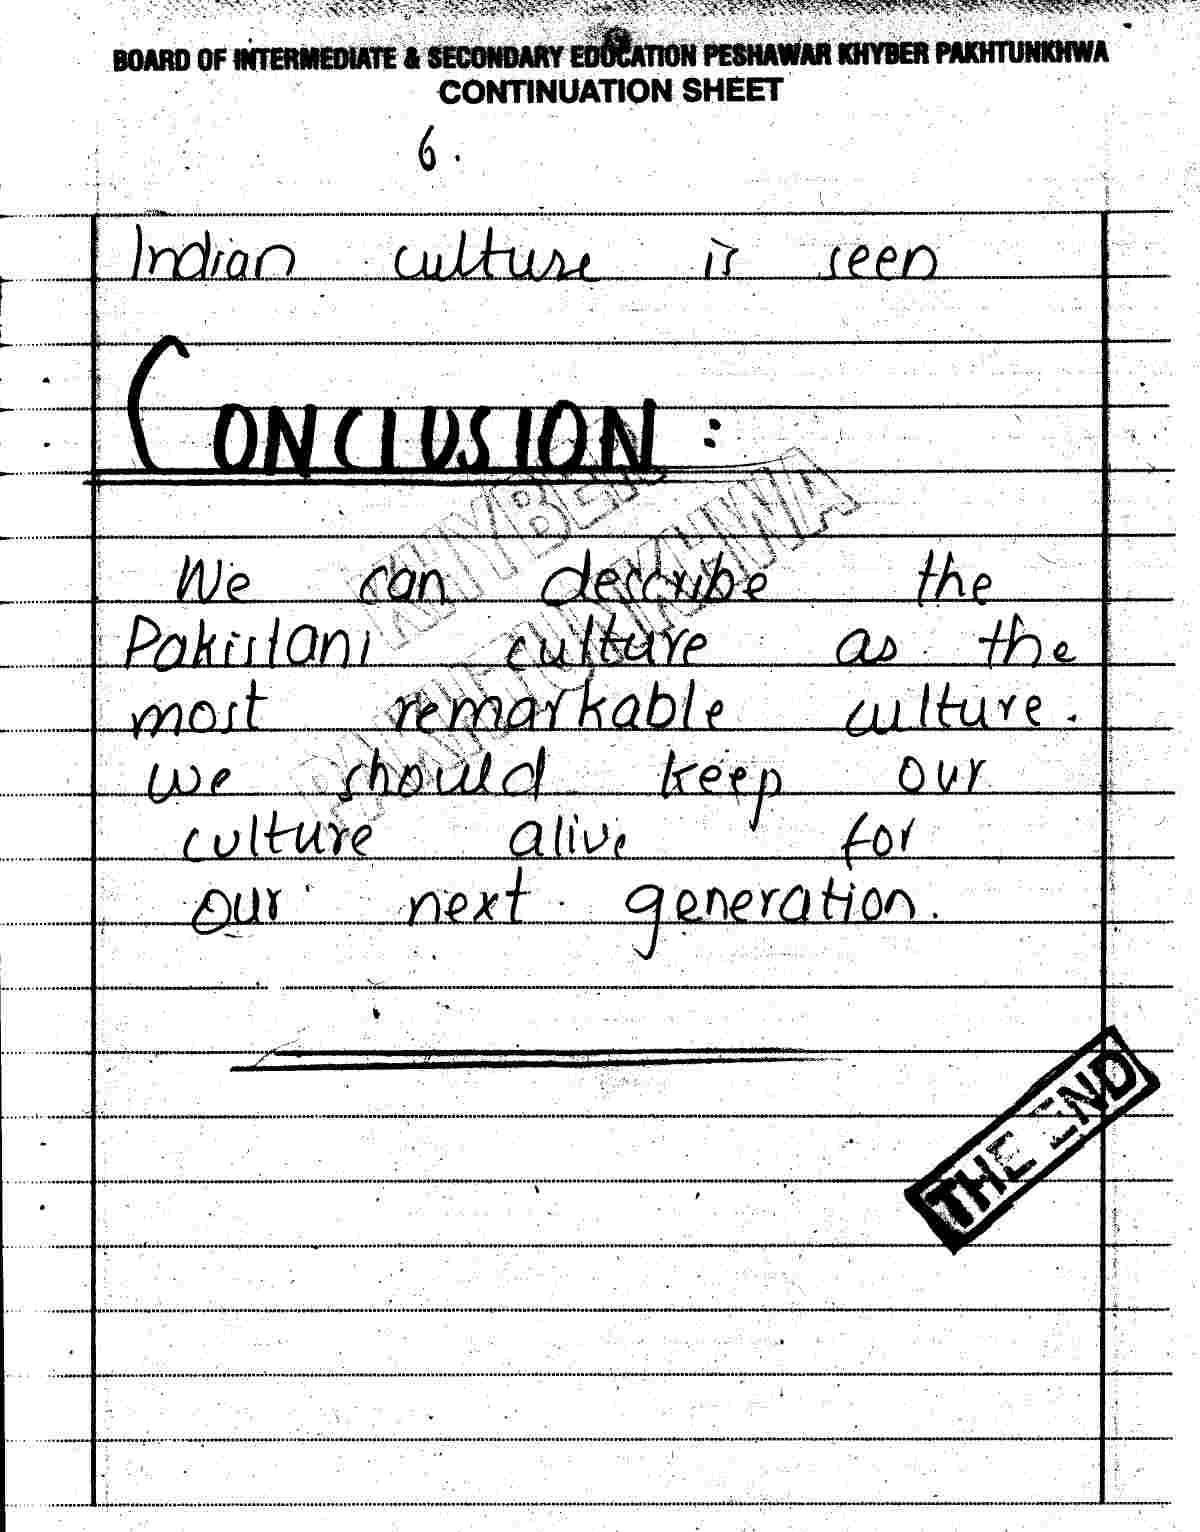 BOARD OF INTERMEDIATE & SECONDARY EDUCATION PESHAWAR KHYBER PAKHTUNKHWA
CONTINUATION SHEET
6.
Indian culture is seen
CONCLUSION:
KHYBER
PAKHTUNKHWA
We can describe the
Pakistani culture as the
most remarkable culture.
we should keep our
culture alive for
our next generation.
THE END